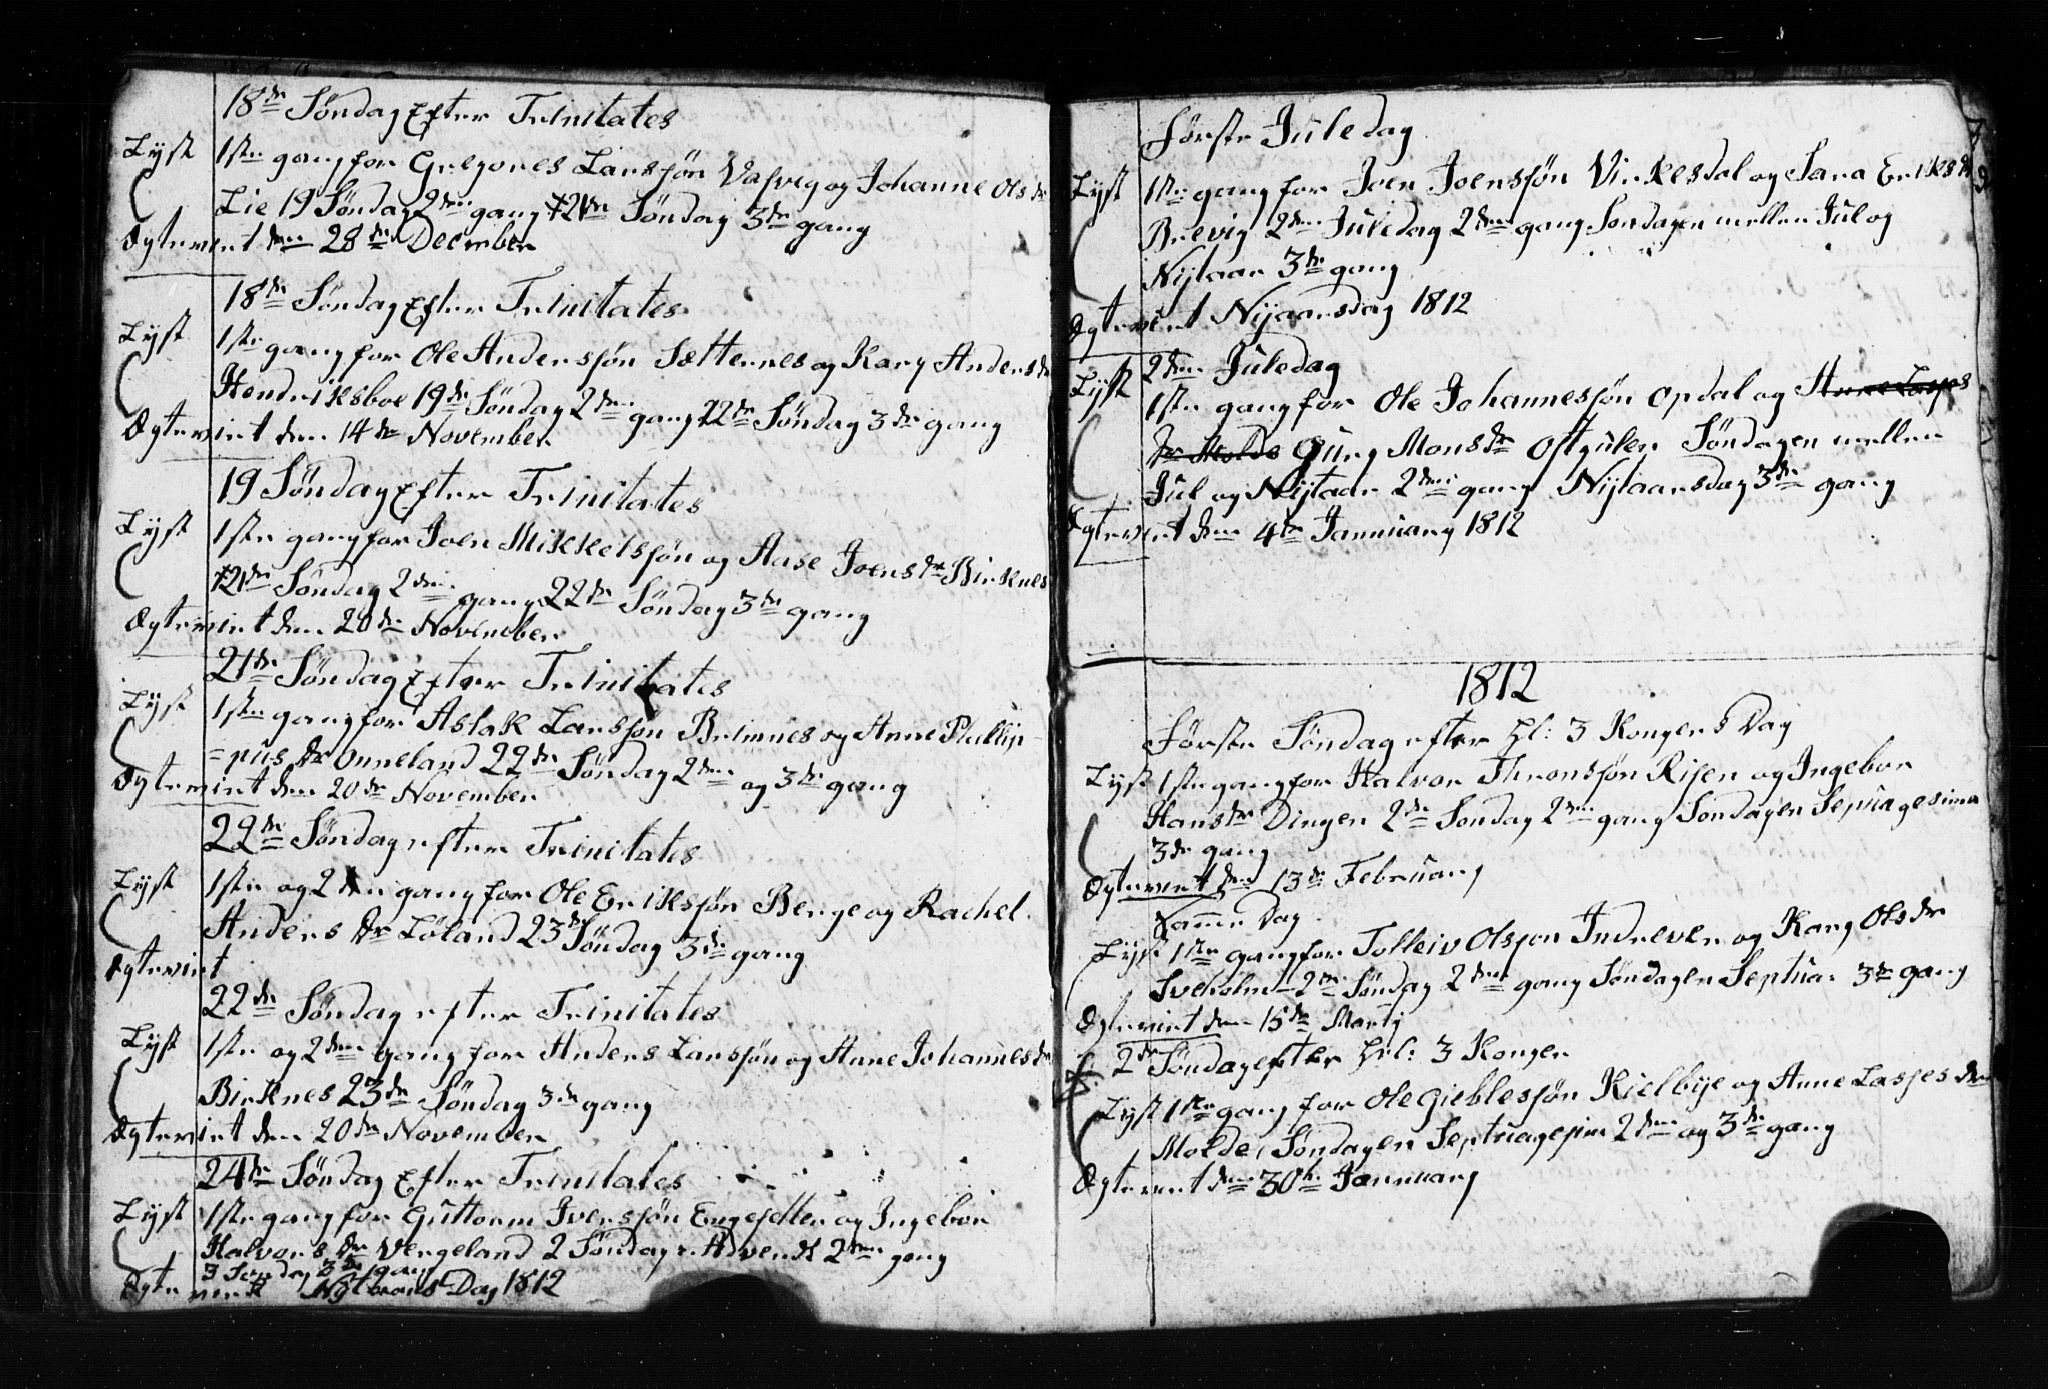 18de Søndag Efter Trinitates
Lyst 1ste gang for Gregorius Larssøn Vasvig og Johanne Ols dr
Lie 19 Søndag 2den gang 21de Søndag 3de gang
Ægteviet den 28de December
18de Søndag Efter Trinitates
Lyst 1ste gang for Ole Anderssøn Sætternes og Kary Anders dr
Hendriksboe 19de Søndag 2den gang 22de Søndag 3de gang
Ægteviet den 14de November
19 Søndag Efter Trinitates
Lyst 1ste gang for Joen Mikkelssøn og Aase Joens dr Birknes
21de Søndag 2den gang 22de Søndag 3de gang
Ægteviet den 20de November
21de Søndag Efter Trinitates
Lyst 1ste gang for Aslak Larssøn Brimnes og Anne Phillip
=pus dr Onneland 22de Søndag 2den og 3de gang
Ægteviet den 20de November
22de Søndag efter Trinitates
Lyst 1ste og 2den gang for Ole Erikssøn Berge og Rachel
Anders dr Løland 23de Søndag 3de gang
Ægteviet
22de Søndag efter Trinitates
Lyst 1ste og 2den gang for Anders Larssøn og Anne Johannes dr
Birknes 23de Søndag 3de gang
Ægteviet den 20de November
24de Søndag Efter Trinitates
Lyst 1ste gang for Guttorm Iverssøn Engesetter og Ingebor
Halvors dr Vergeland 2 Søndag i Advendt 2den gang
3 Søndag 3de gang
Ægteviet Nytaars Dag 1812
7
Første Juledag
Lyst 1ste gang for Joen Joenssøn Virkesdal og Sara Eriks dr
Brevig 2den Juledag 2den gang Søndagen mellem Jul og
Nytaar 3de gang
Ægteviet Nyaarsdag 1812
2den Juledag
Lyst 1ste gang for Ole Johannessøn Opdal og Anne Lasses
dr Molde Gury Mons dr Ostgulen Søndagen mellem
Jul og Nytaar 2den gang Nytaarsdag 3de gang
Ægteviet den 4de Januuary 1812
1812
Første Søndag efter Hl: 3 Kongers Dag
Lyst 1ste gang for Halvor Thronssøn Risen og Ingebor
Hans dr Dingen 2de Søndag 2den gang Søndagen Septuagesima
3de gang
Ægteviet den 13de Februarij
Samme Dag
Lyst 1ste gang for Tolleiv Olsson Indrevær og Kary Ols dr
Sveholm 2de Søndag 2den gang Søndagen Septua: 3de gang
Ægteviet den 15de Martj
2de Søndag efter Hel: 3 Konger
Lyst 1ste gang for Ole Gieblessøn Kielbye og Anne Lasses dr
Molde, Søndagen Septuagesim 2den og 3de gang
Ægteviet den 30te Januuarij